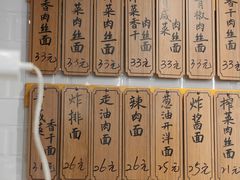 香干肉丝面
33元
肉丝面
33元
榨菜肉丝面
33元
菜香干肉丝面
33元
肉丝面
33元
青椒肉丝面
33元
肉丝面
33元
香干面
炸排面
26元
走油肉面
26元
辣肉面
26元
葱油开洋面
25元
炸酱面
25元
榨菜肉丝面
21元